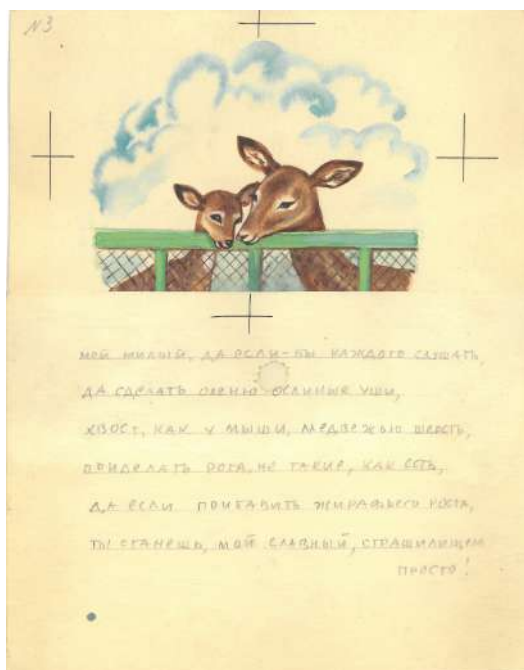 N3
МОЙ МИЛЫЙ, ДА ЕСЛИ-БЫ КАЖДОГО СЛУШАТЬ,
ДА СДЕЛАТЬ ОЛЕНЮ ОСЛИНЫЕ УШИ,
ХВОСТ, КАК У МЫШИ, МЕДВЕЖЬЮ ШЕРСТЬ,
ПРИДЕЛАТЬ РОГА, НЕ ТАКИЕ, КАК ЕСТЬ,
ДА ЕСЛИ ПРИБАВИТЬ ЖИРАФЬЕГО РОСТА,
ТЫ СТАНЕШЬ, МОЙ СЛАВНЫЙ, СТРАШИЛИЩЕМ
ПРОСТО!